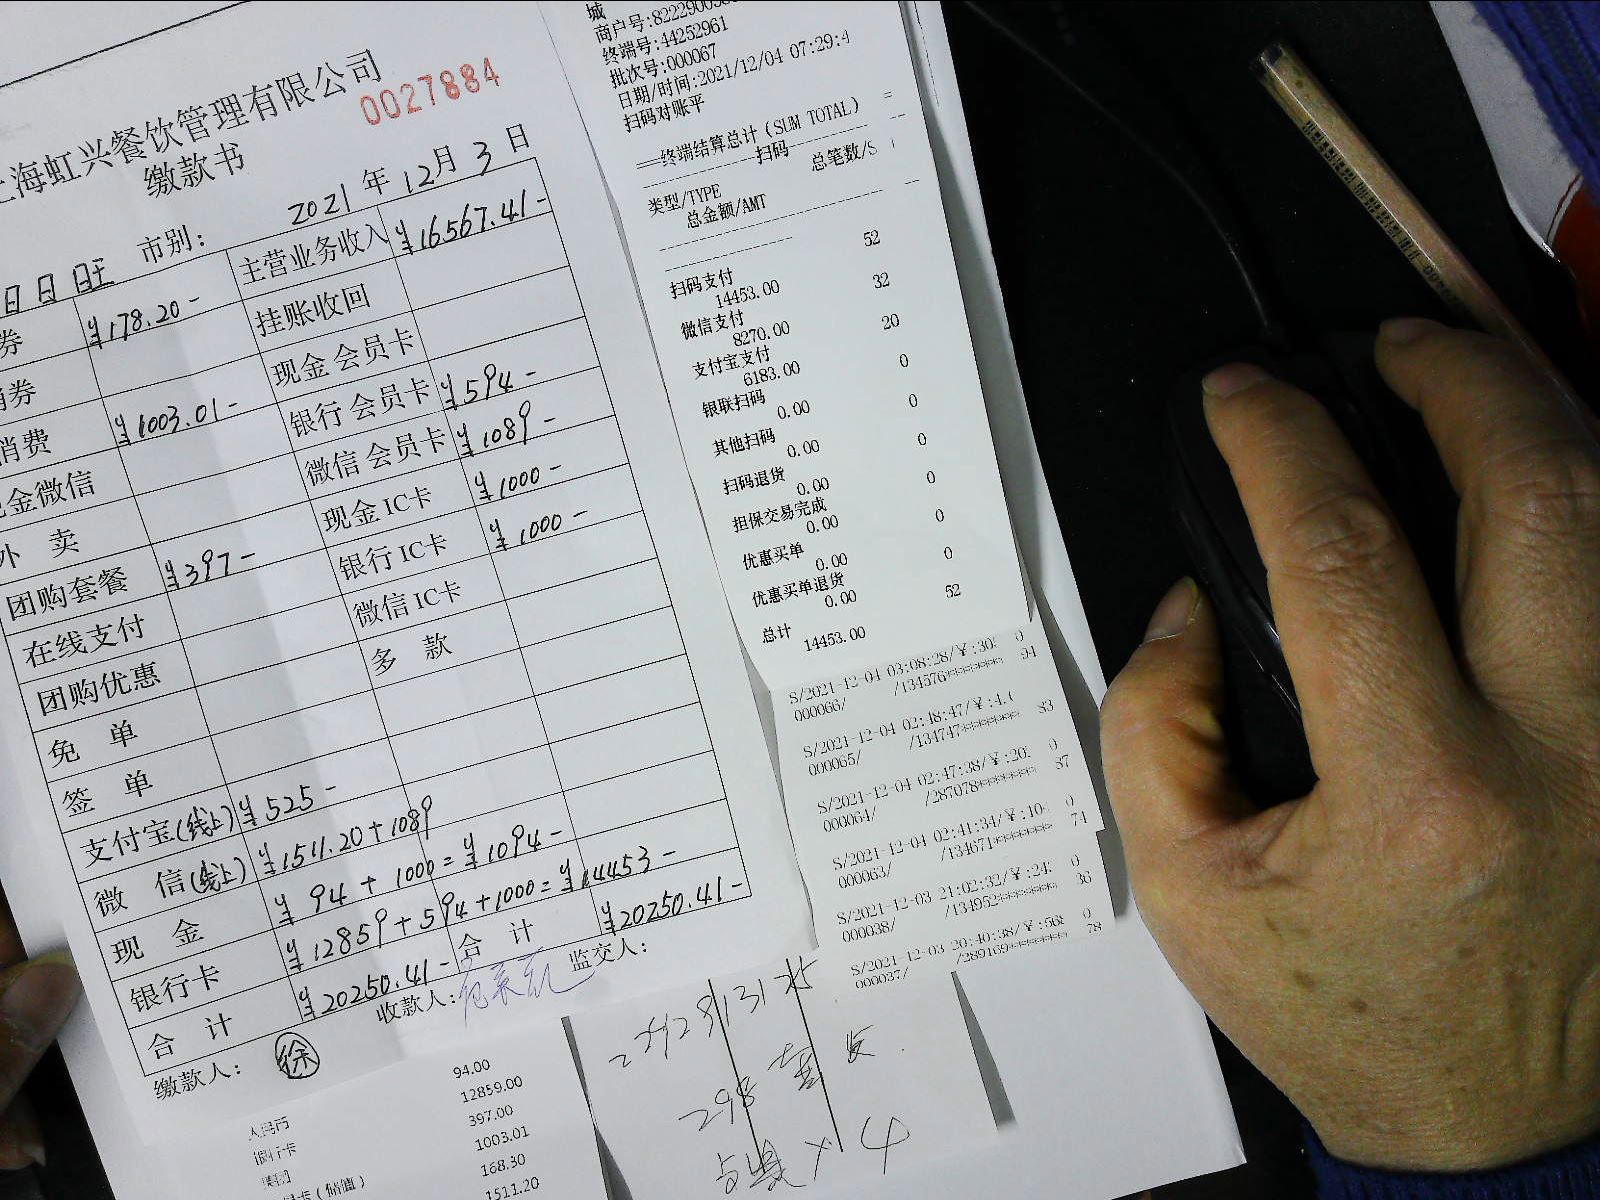 上海虹兴餐饮管理有限公司
0027884
缴款书
2021 年 12月 3 日
市别：
日日旺
券 ¥178.20- 主营业务收入 ¥16567.41-
券 挂账收回
消费 ¥1003.01- 现金会员卡
金微信 银行会员卡 ¥594-
外 卖 微信会员卡 ¥1089-
团购套餐 ¥397- 现金IC卡 ¥1000-
在线支付 银行IC卡 ¥1000-
团购优惠 微信IC卡
免 单 多 款
签 单
支付宝(线上) ¥525-
微 信(线上) ¥1511.20+1089
现 金 ¥94+1000=¥1094-
银行卡 ¥12859+594+1000=¥14453-
合 计 ¥20250.41- 合 计 ¥20250.41-
缴款人： 徐 收款人： 监交人：
94.00
人民币 12859.00
银行卡 397.00
1003.01
168.30
卡(储值) 1511.20
城
终端号:44252961
批次号:000067
日期/时间:2021/12/04 07:29:4
扫码对账平
==终端结算总计(SUM TOTAL) =
扫码
类型/TYPE 总笔数/S
总金额/AMT
扫码支付 52
14453.00
微信支付 32
8270.00
支付宝支付 20
6183.00
银联扫码 0
0.00
其他扫码 0
0.00
扫码退货 0
0.00
担保交易完成 0
0.00
优惠买单 0
0.00
优惠买单退货 0
0.00
总计 52
14453.00
S/2021-12-04 03:08:28/￥:30 0
000066/ /134576******* 94
S/2021-12-04 02:48:47/￥:4.
000065/ /134747******* 83
S/2021-12-04 02:47:38/￥:20 0
000064/ /287078******* 87
S/2021-12-04 02:41:34/￥:10 0
000063/ /134671******* 74
S/2021-12-03 21:02:32/￥:24 0
000038/ /134952******* 36
S/2021-12-03 20:40:38/￥:56 0
000037/ /289169******* 78
298
x 4